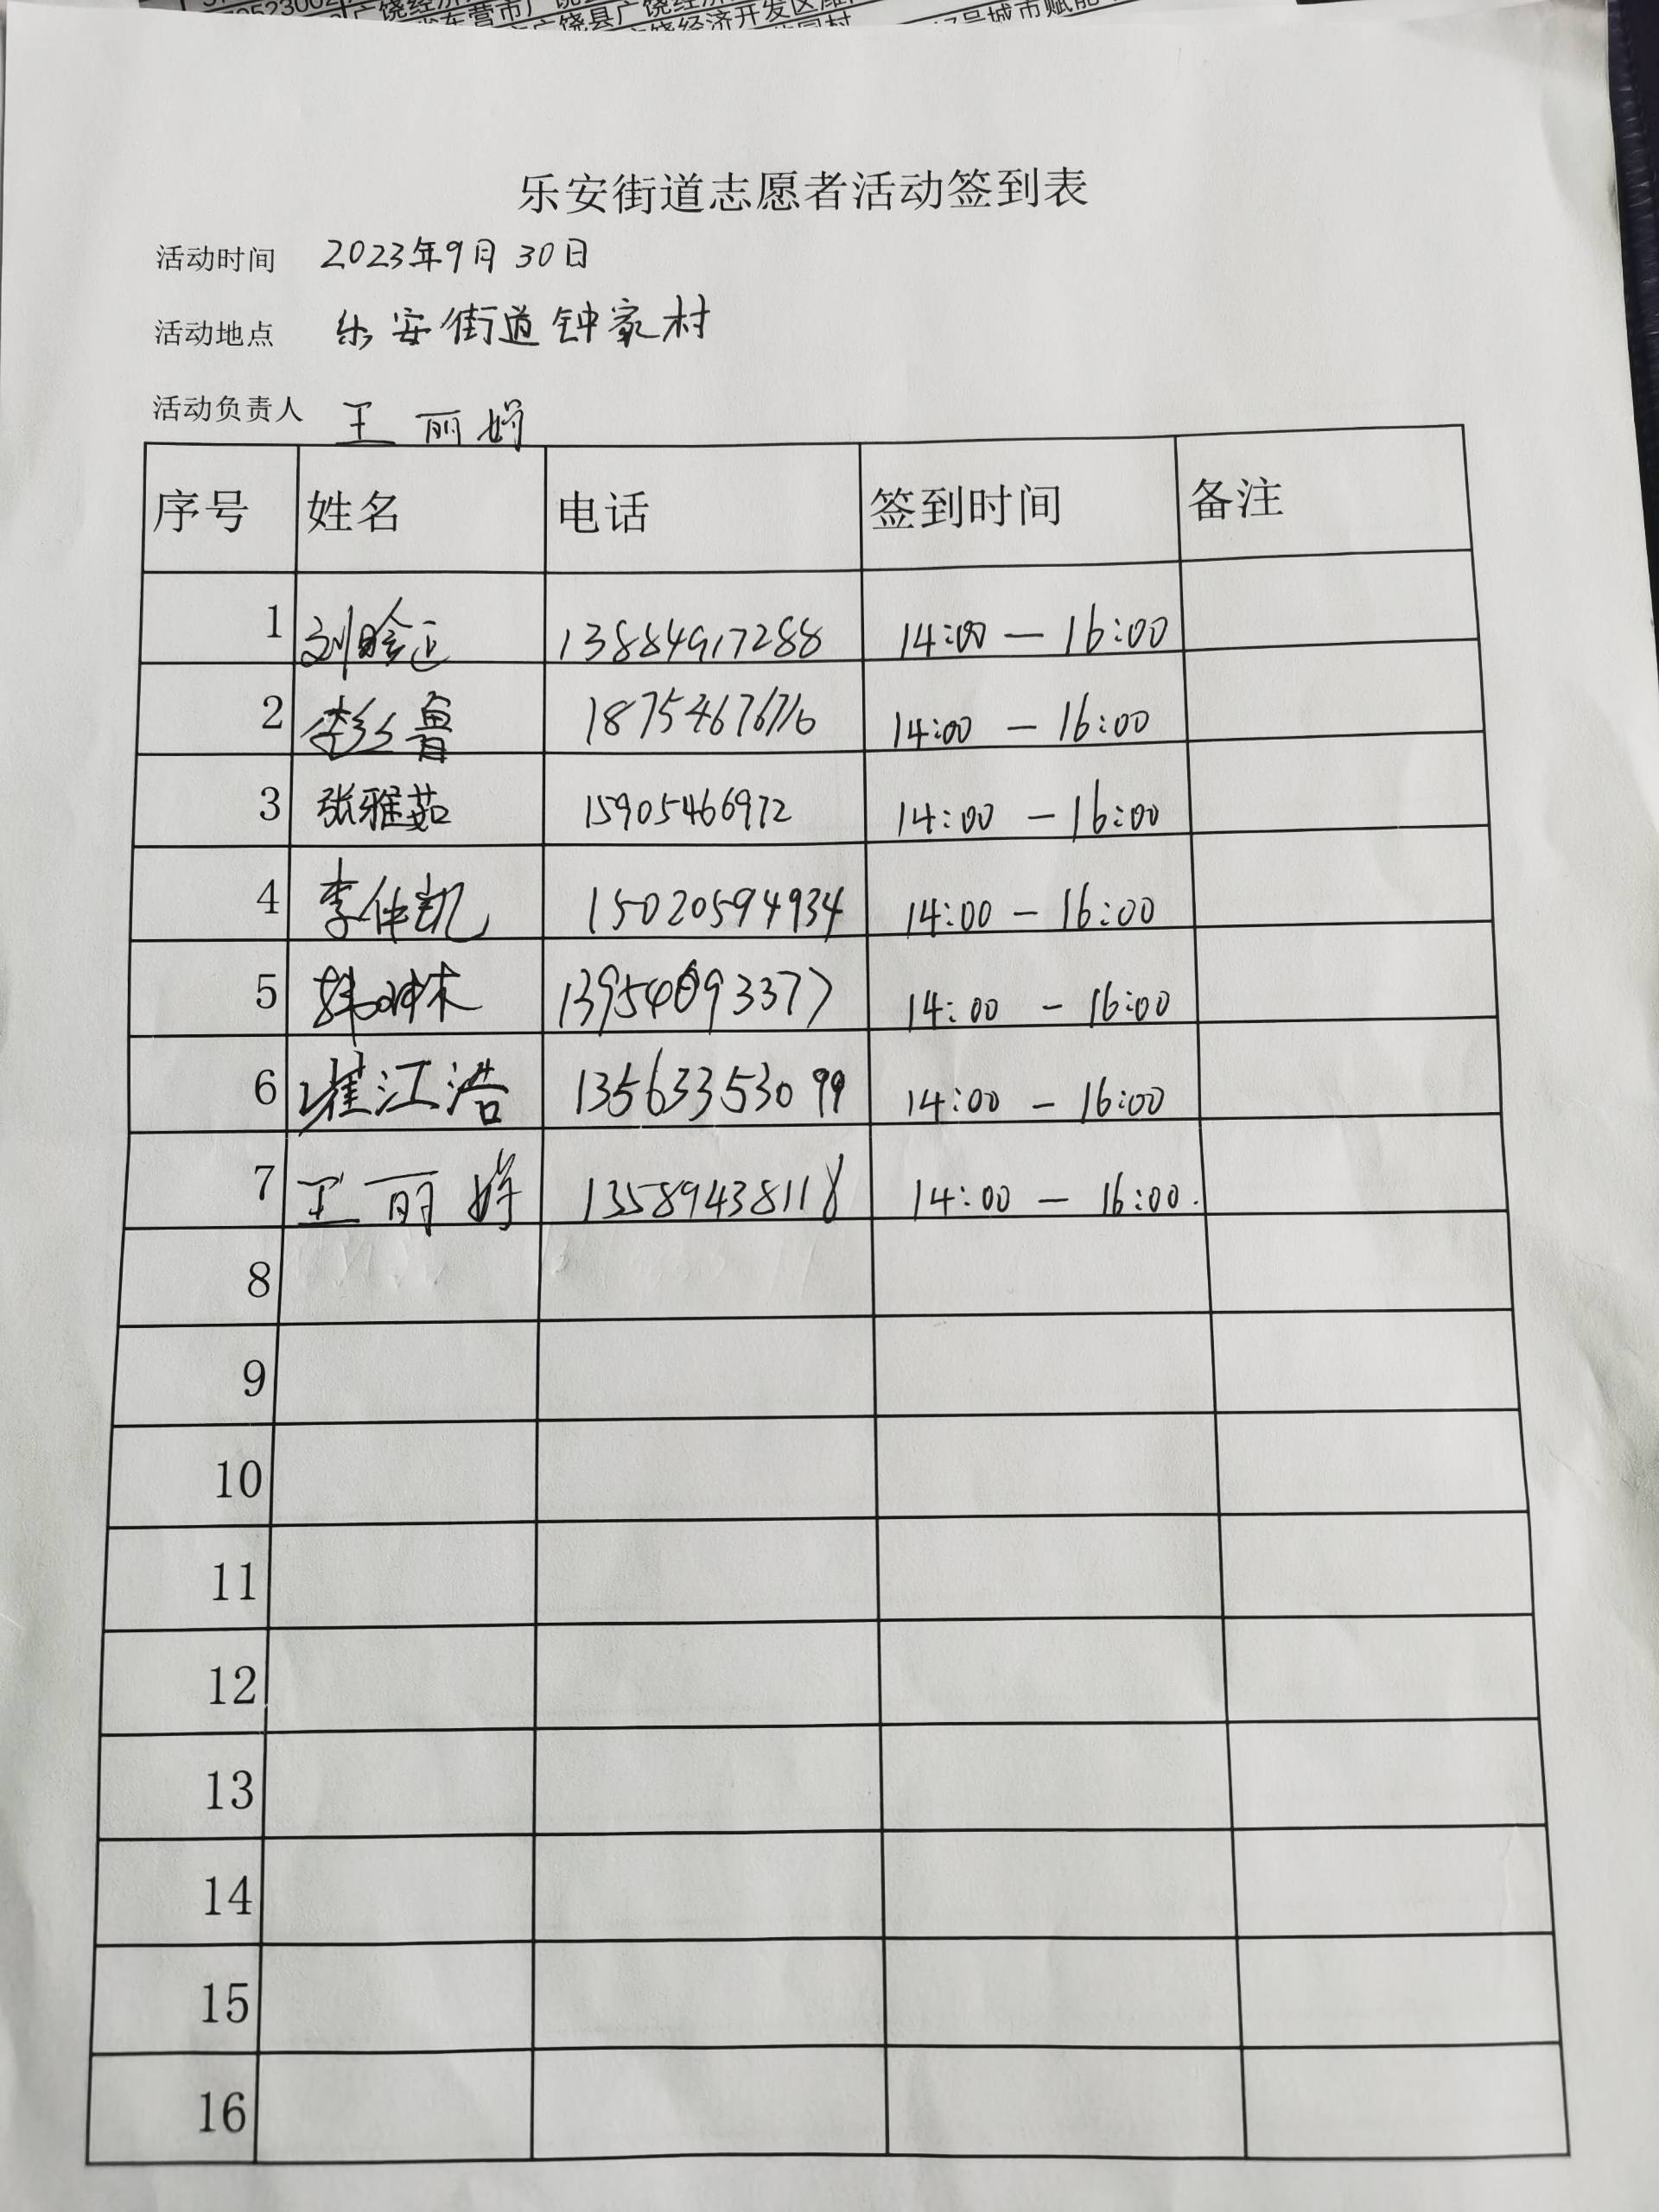 乐安街道志愿者活动签到表
活动时间 2023年9月30日
活动地点 乐安街道钟家村
活动负责人 王丽婷
序号 姓名 电话 签到时间 备注
1 刘 正 13884917288 14:00 — 16:00
2 李 鲁 18754676716 14:00 — 16:00
3 张雅茹 15905466972 14:00 — 16:00
4 李仲凯 15020594934 14:00 — 16:00
5 韩 林 13954693377 14:00 — 16:00
6 崔江浩 13563353099 14:00 — 16:00
7 王丽婷 13589438118 14:00 — 16:00.
8
9
10
11
12
13
14
15
16